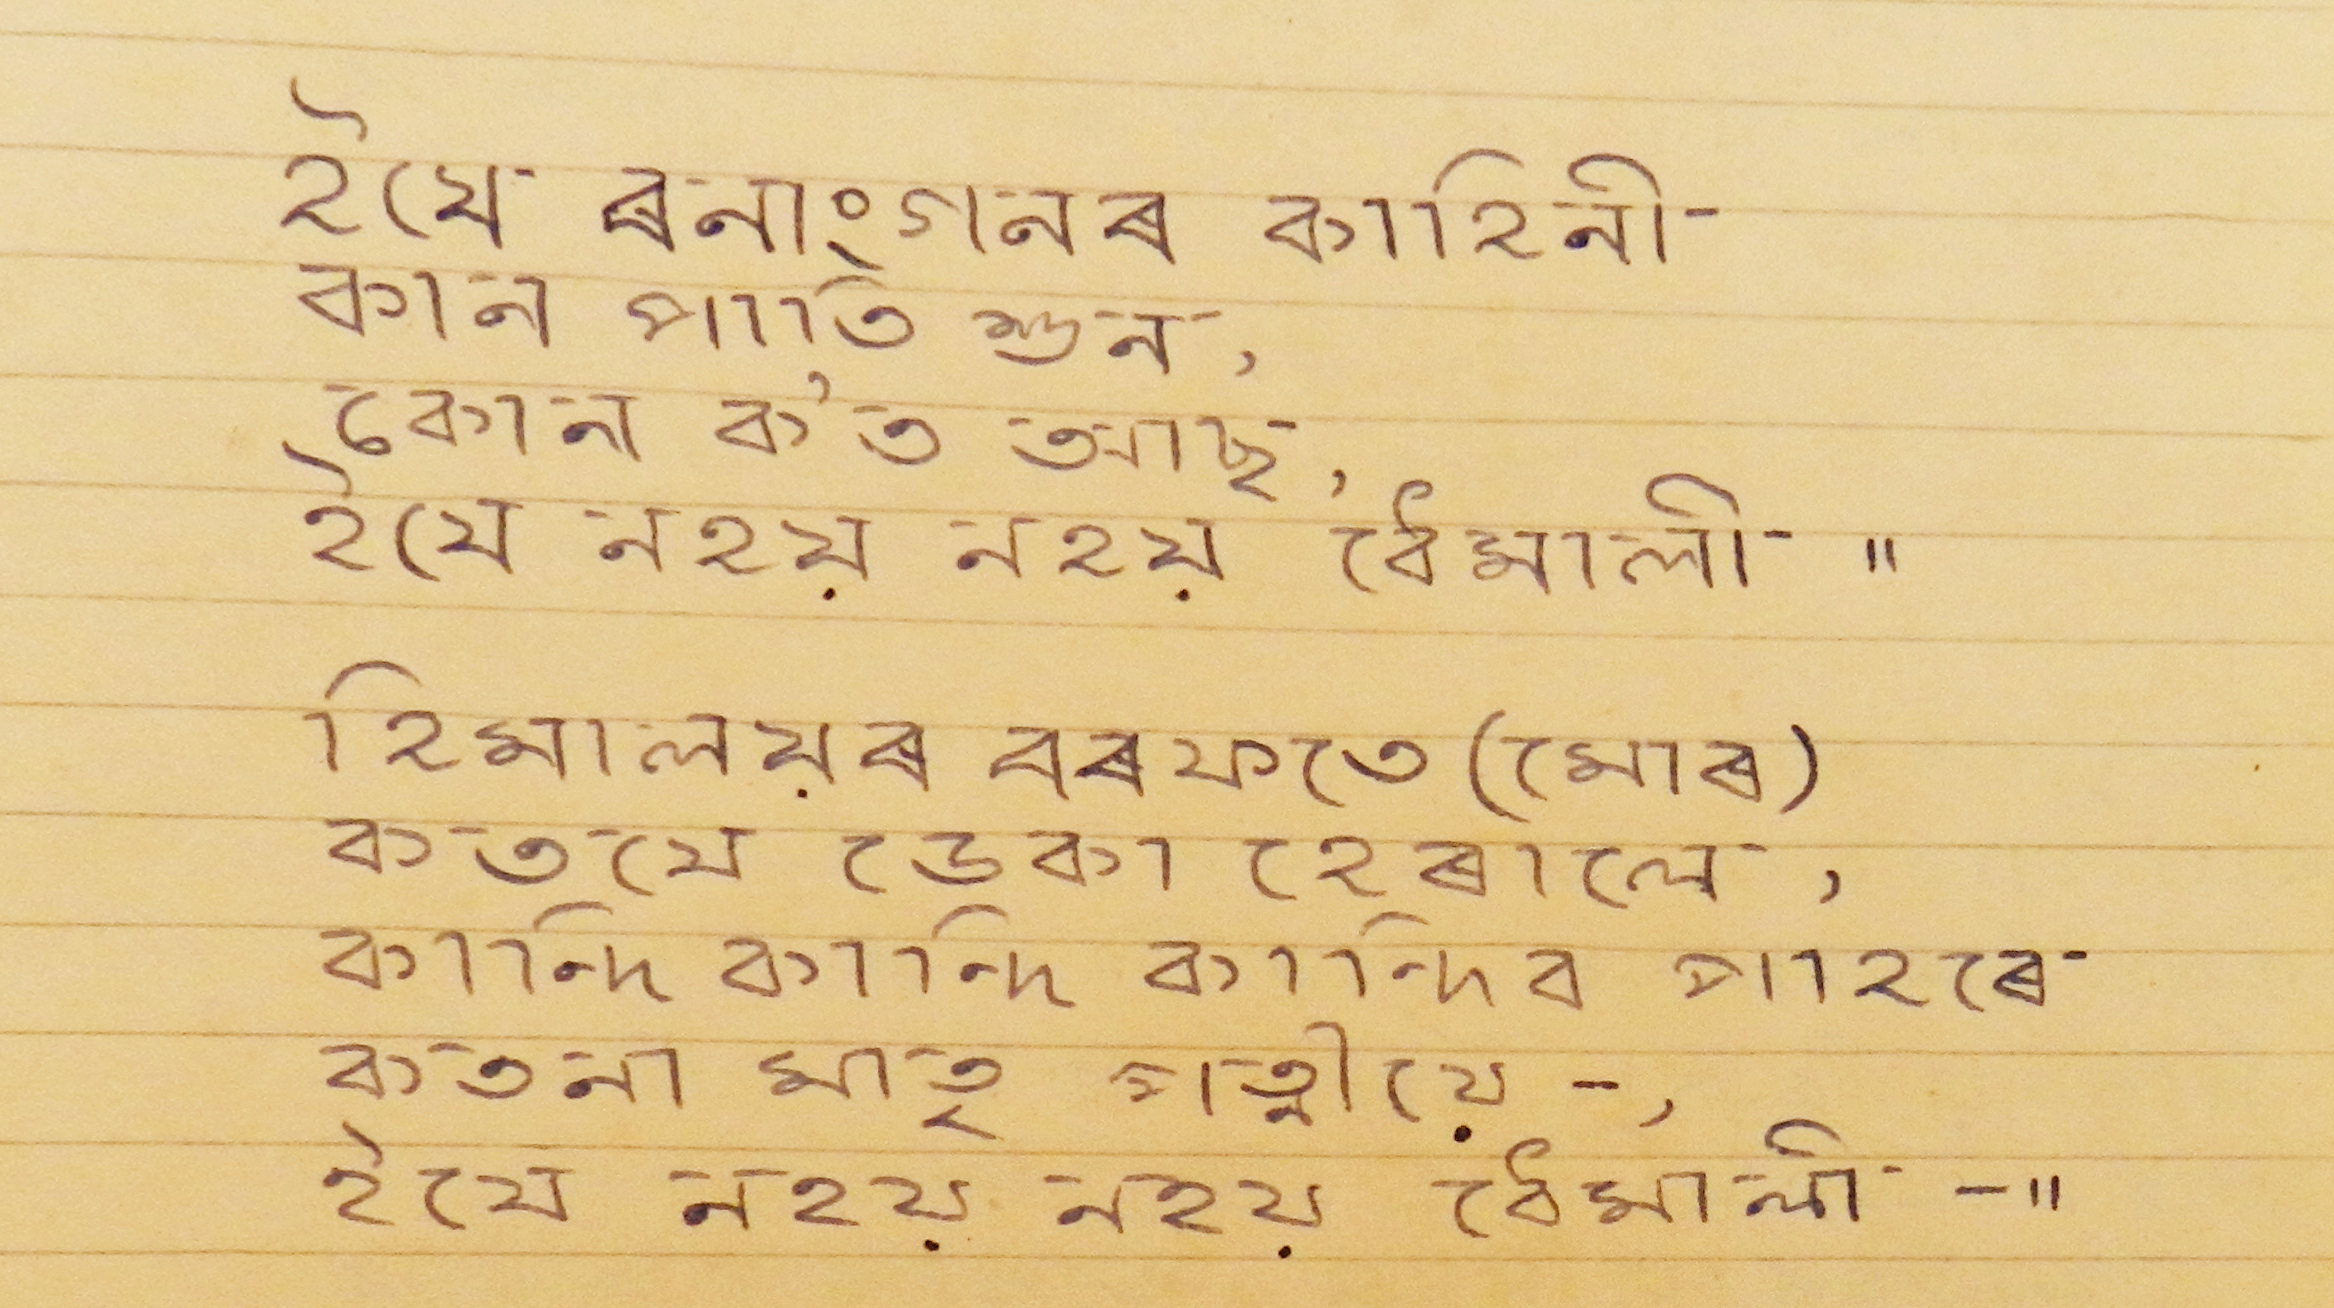 ইযে ৰনাংগনৰ কাহিনী
কান পাতি শুন,
কোন ক'ত আছ,
ইযে নহয় নহয় ধেমালী ॥
হিমালয়ৰ বৰফতে (মোৰ)
কতযে ডেকা হেৰালে,
কান্দি কান্দি কান্দিব পাহৰে
কতনা মাতৃ পত্নীয়ে -,
ইযে নহয় নহয় ধেমালী -॥